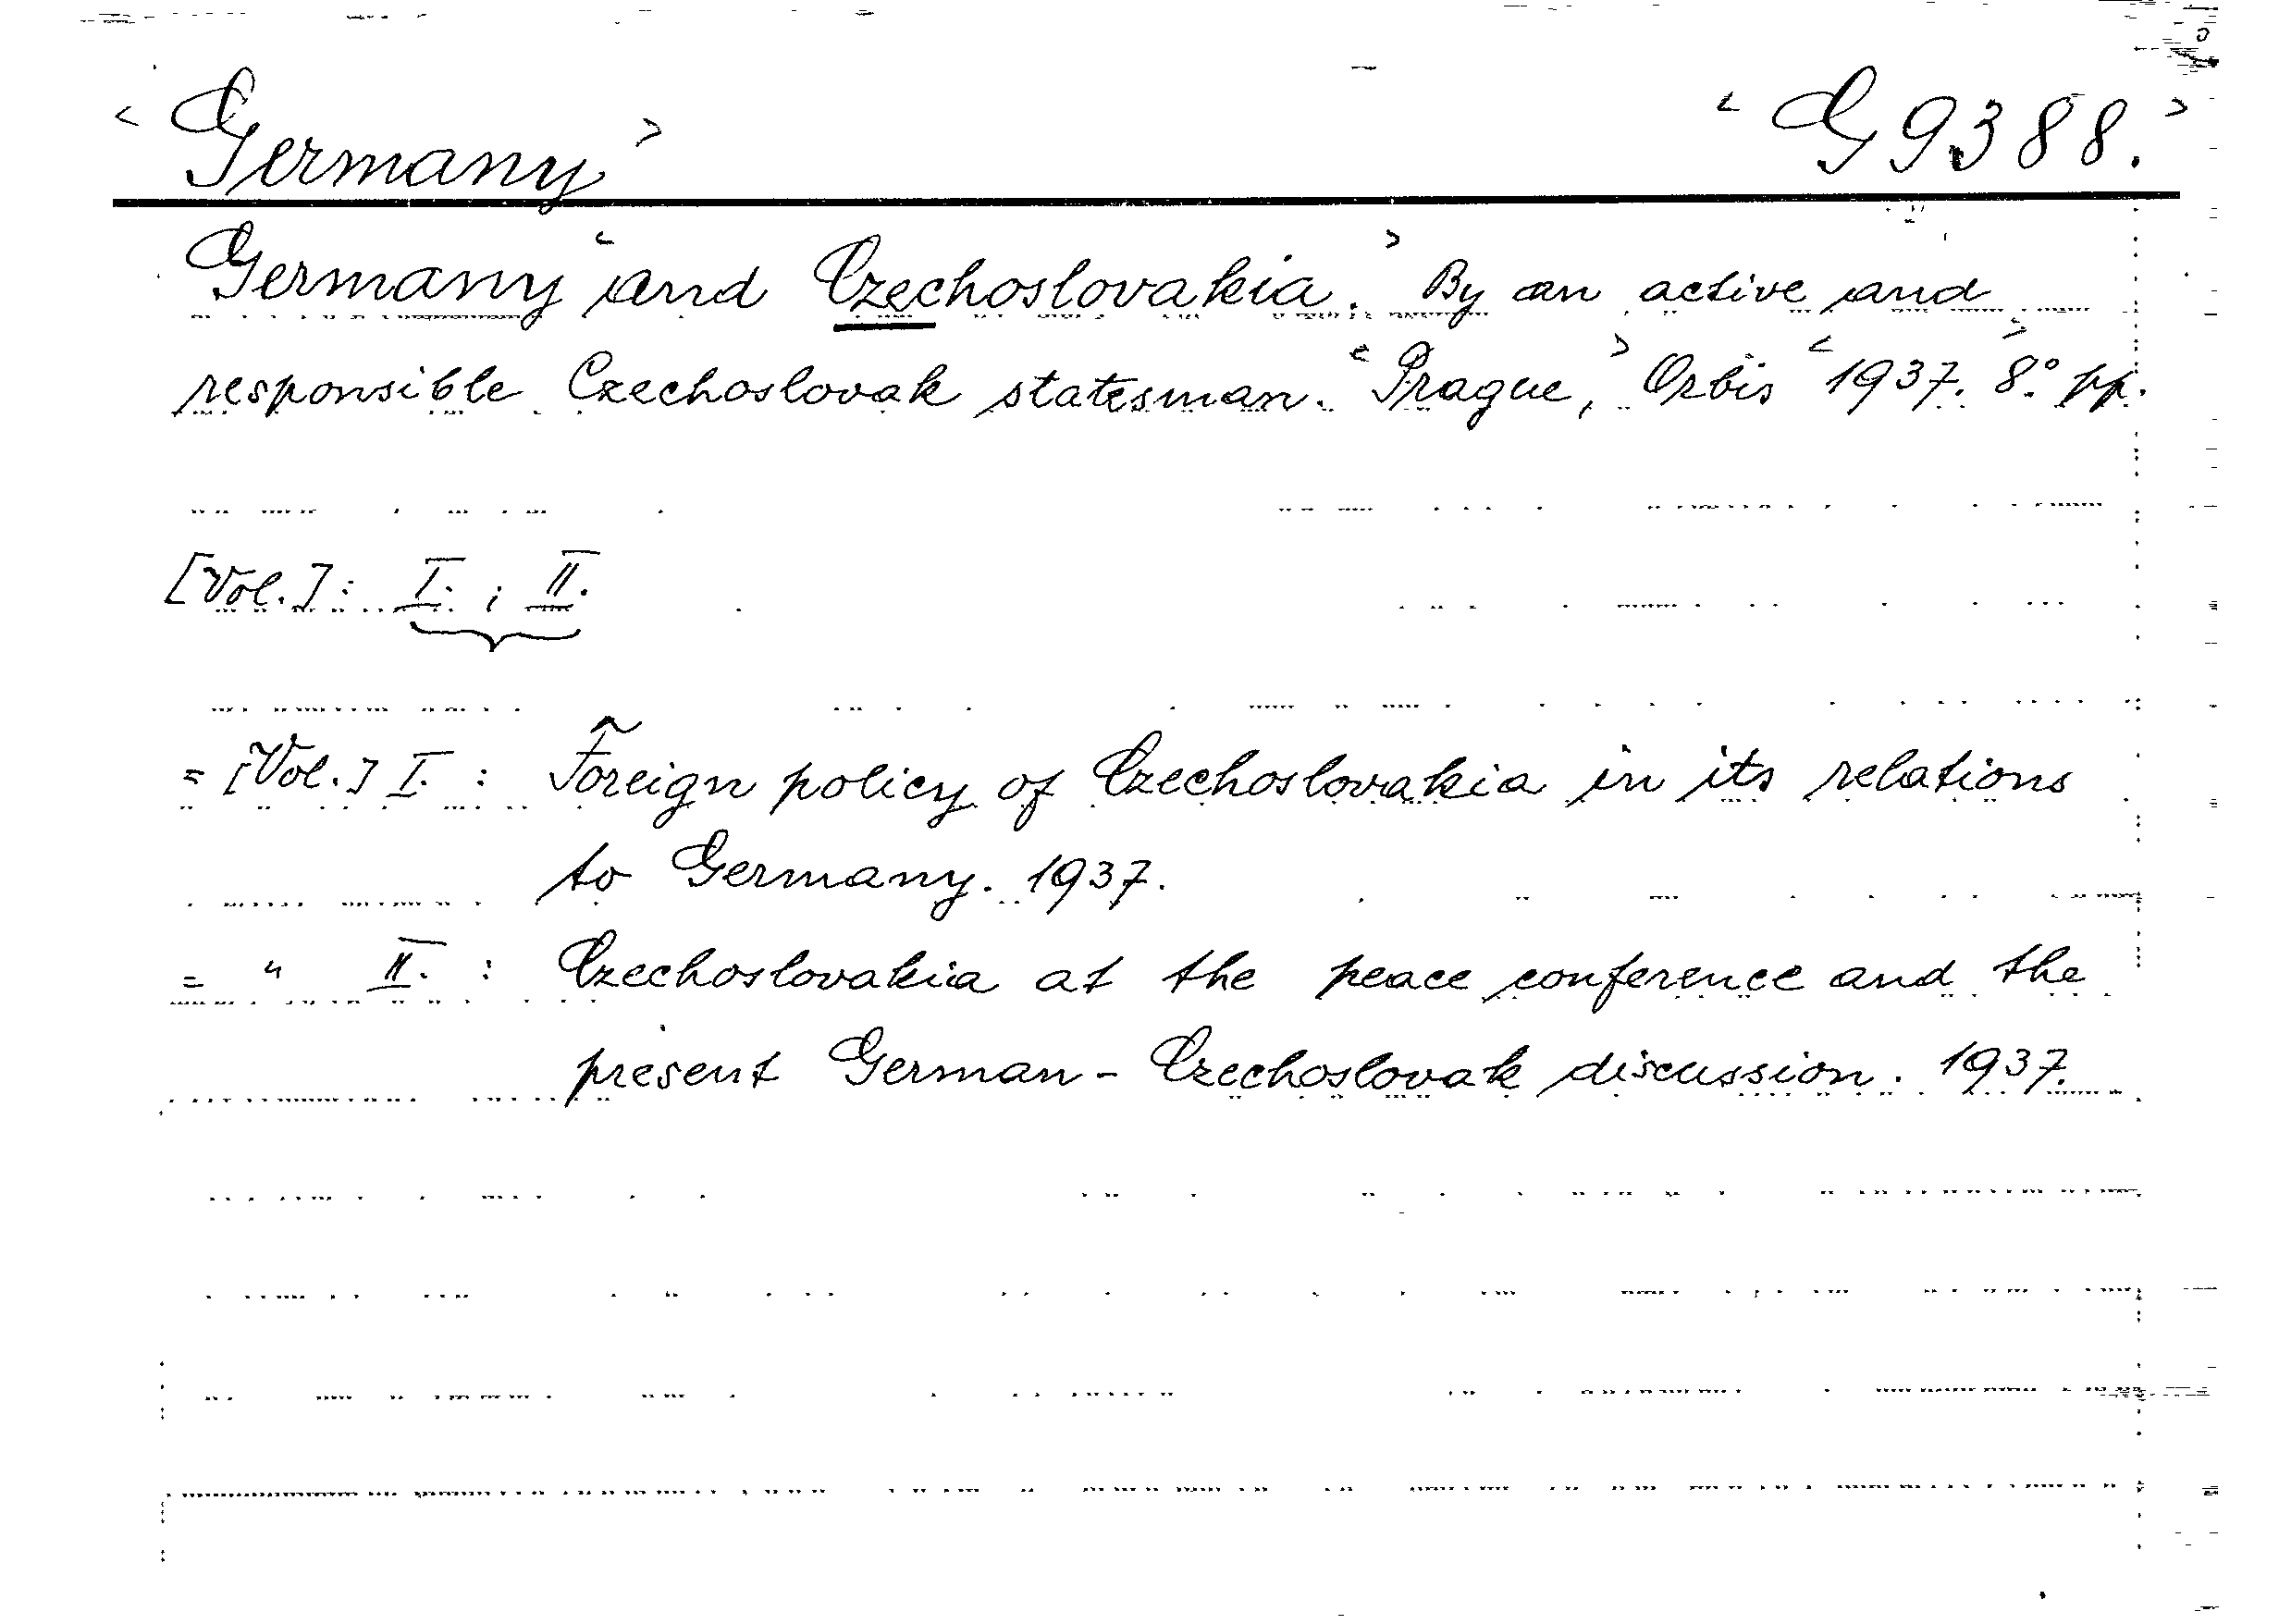 < Germany > < G 9388. >
Germany < and Czechoslovakia. > By an active and
responsible Czechoslovak statesman. < Prague, > Orbis < 1937. > 8° pp.
[Vol.]: I. ; II.
= [Vol.] I. : Foreign policy of Czechoslovakia in its relations
to Germany. 1937.
= " II. : Czechoslovakia at the peace conference and the
present German - Czechoslovak discussion. 1937.